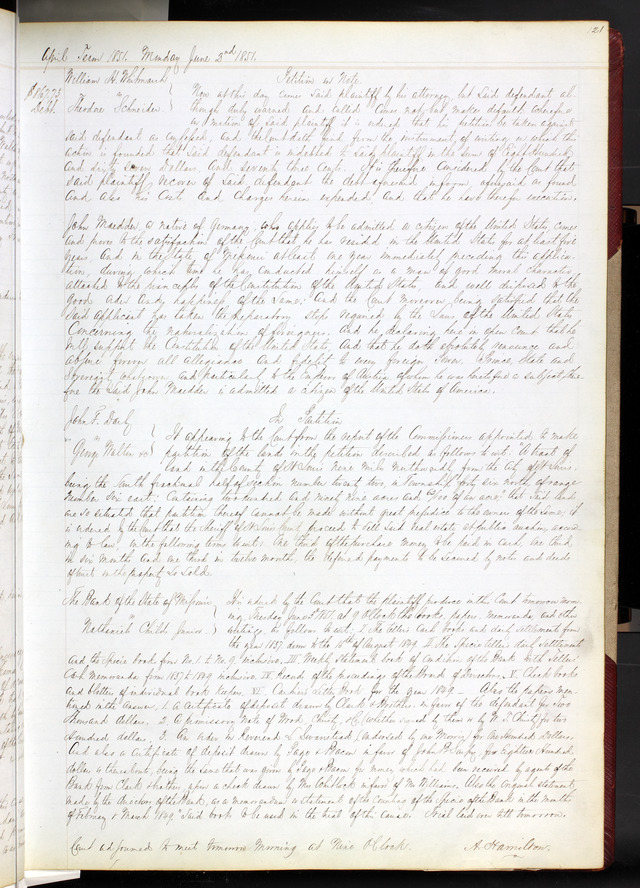 121
April Term 1851. Monday June 2nd 1851.
William H. Whitmarsh } Petition in Note
$867.73 Debt. vs Theodore Schneider } Now at this day comes said plaintiff by his attorney, but said defendant al-
though duly warned and called comes not, but makes default wherefore
on motion of said plaintiff it is ordered that his petition be taken against
said defendant as confessed, and the Court doth find from the instrument of writing on which this
action is founded that said defendant is indebted to said plaintiff in the sum of Eight Hundred
and sixty seven Dollars and seventy three cents. It is therefore considered by the Court that
said plaintiff recover of said defendant the debt aforesaid in form aforesaid as found
and also his Costs and Charges herein expended and that he have therefor execution.
John Maedder a native of Germany, who applies to be admitted a citizen of the United States, comes
and proves to the satisfaction of the Court that he has resided in the United States for at least five
years, and in the State of Missouri at least one year immediately preceding this applica-
tion, during which time he has conducted himself as a man of good moral character,
attached to the principles of the Constitution of the United States, and well disposed to the
good order and happiness of the same; And the Court moreover being satisfied that the
said applicant has taken the preparatory steps required by the Laws of the United States
Concerning the naturalization of foreigners, and he declaring here in open court that he
will support the Constitution of the United States and that he doth absolutely renounce and
abjure forever all allegiance and fidelity to every foreign Power, Prince, State and
Sovereignty whatsoever and particularly to the Emperor of Austria of whom he was heretofore a subject, there-
fore the said John Maedder is admitted a citizen of the United States of America.
John F. Darby } In Partition
vs George Walter } It appearing to the Court from the report of the Commissioners appointed to make
partition of the lands in the petition described as follows to wit; A tract of
land in the County of St Louis nine miles northwardly from the City of St Louis,
being the fractional half of section number twenty two, in Township forty six north of range
number six east; Containing two hundred and ninety nine acres and /100 of an acre; that said lands
are so situated that partition thereof cannot be made without great prejudice to the owners of the same; it
is ordered by the Court that the Sheriff of St Louis County proceed to sell said real estate at public auction accord-
ing to law on the following terms to wit: One third of the purchase money to be paid in cash, one third
in six months and one third in twelve months, the deferred payments to be secured by notes and deeds
of trust on the property so sold.
The Bank of the State of Missouri } It is ordered by the Court that the plaintiff produce in this Court tomorrow morn-
ing Tuesday June 3rd 1851. at 9 O'Clock the books, papers, memorandas and other
vs Nathaniel Childs Junior } writings, as follows to wit, I The Tellers Cash books and daily settlements from
the year 1837 down to the 16th of August 1849 II. The Specie tellers daily settlements
and the Specie books from No. 1 to No. 9 inclusive, III. Weekly Statement book of condition of the Bank with Tellers
Cash Memorandas from 1837 to 1849 inclusive IV Records of the proceedings of the Board of Directors, V. Check books
and blotter of individual book keepers, VI. Cashiers Letter Book for the year 1849 - Also the papers men-
tioned in the answer, 1. A Certificate of deposit drawn by Clark & Brothers in favor of the defendant for Two
thousand dollars. 2. A promissory note of
Hundred dollars, 3. An order on
And also a Certificate of deposit drawn by Page & Bacon in favor of John for Eighteen Hundred
dollars or thereabouts, being the same that was given by Page & Bacon for money which had been received by agents of the
Bank from Clark & Brothers upon a check drawn by in favor of Mr Williams. Also the original statement
made by the directors of the Bank, as a memorandum or statement of the Counting of the Specie of the Bank in the months
of February & March 1849 Said books to be used in the trial of this cause. Trial laid over till tomorrow.
Court adjourned to meet tomorrow Morning at Nine O'Clock.
A. Hamilton.